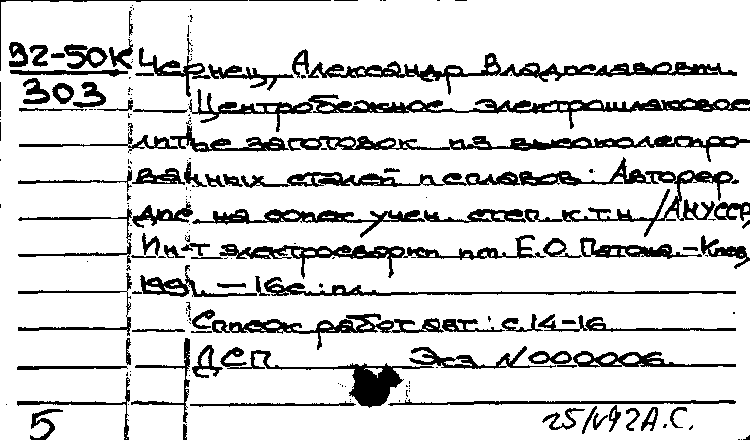 92-50К Чернец, Александр Владиславович.
303 Центробежное электрошлаковое
литье заготовок из высоколегиро-
ванных сталей и сплавов: Автореф.
дис. на соиск. учен. степ. к.т.н /АН УССР,
Ин-т электросварки им. Е.О. Патона. – Киев,
1991. – 16с.: ил.
Список работ авт.: с.14-16
ДСП. Экз. N 000006.
5 А.С.